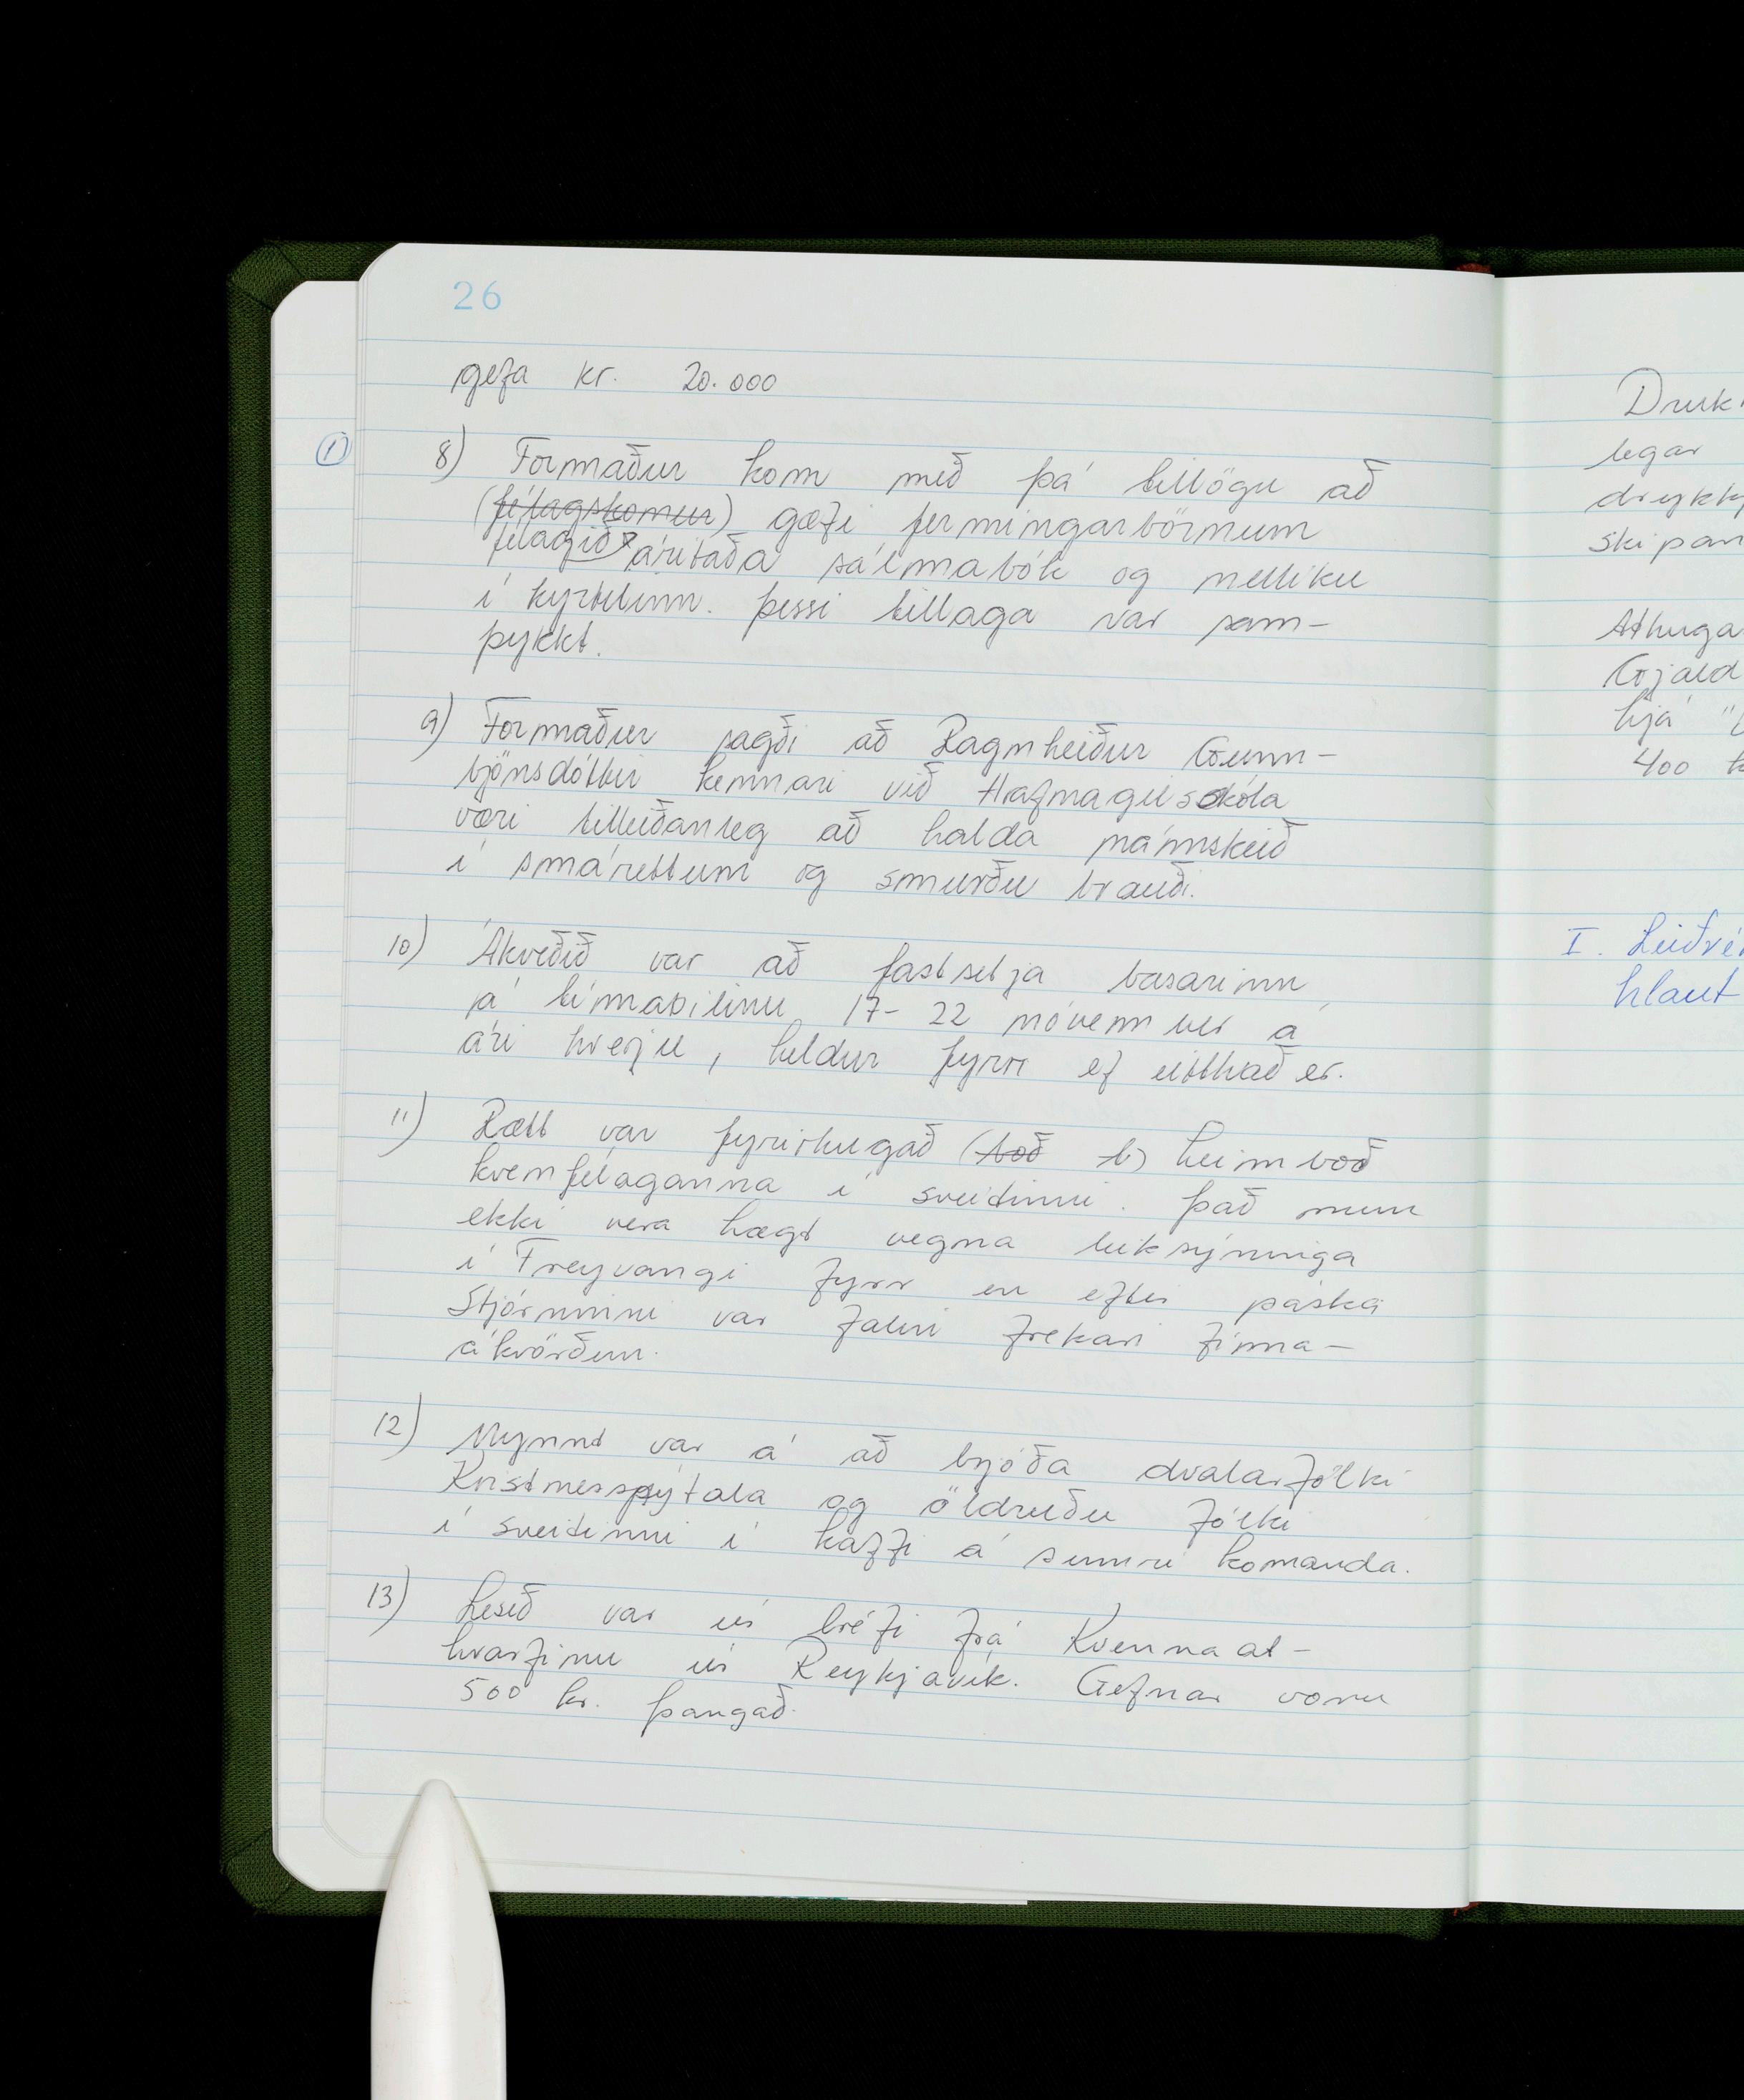 26
gefa kr. 20.000
1) 8) Formaður kom með þá tillögu að
(félagskonur) gæfi fermingarbörnum
félagið áritaða sálmabók og nelliku
í kyrtilinn. Þessi tillaga var sam-
þykkt.
9) Formaður sagði að Ragnheiður Gunn-
björnsdóttir kennari við Hrafnagilsskóla
væri tilleiðanleg að halda námskeið
í smáréttum og smurðu brauði.
10) Ákveðið var að fastsetja basarinn
á tímabilinu 17-22 nóvember á
ári hverju, heldur fyrr ef eitthvað er.
11) Rætt var fyrirhugað (boð b) heimboð
kvenfélaganna í sveitinni. Það mun
ekki vera hægt vegna leiksýninga
í Freyvangi fyrr en eftir páska
Stjórninni var falin frekari tíma-
ákvörðun.
12) Mynnst var á að bjóða dvalarfólki
Kristnesspýtala og öldruðu fólki
í sveitinni í kaffi á sumri komanda.
13) Lesið var úr bréfi frá Kvennaat-
hvarfinu úr Reykjavík. Gefnar voru
500 kr. þangað.
Druk
legar
drykkj
skipan
Athuga
Gjald
hjá "
400 k
I. Leiðré
hlaut